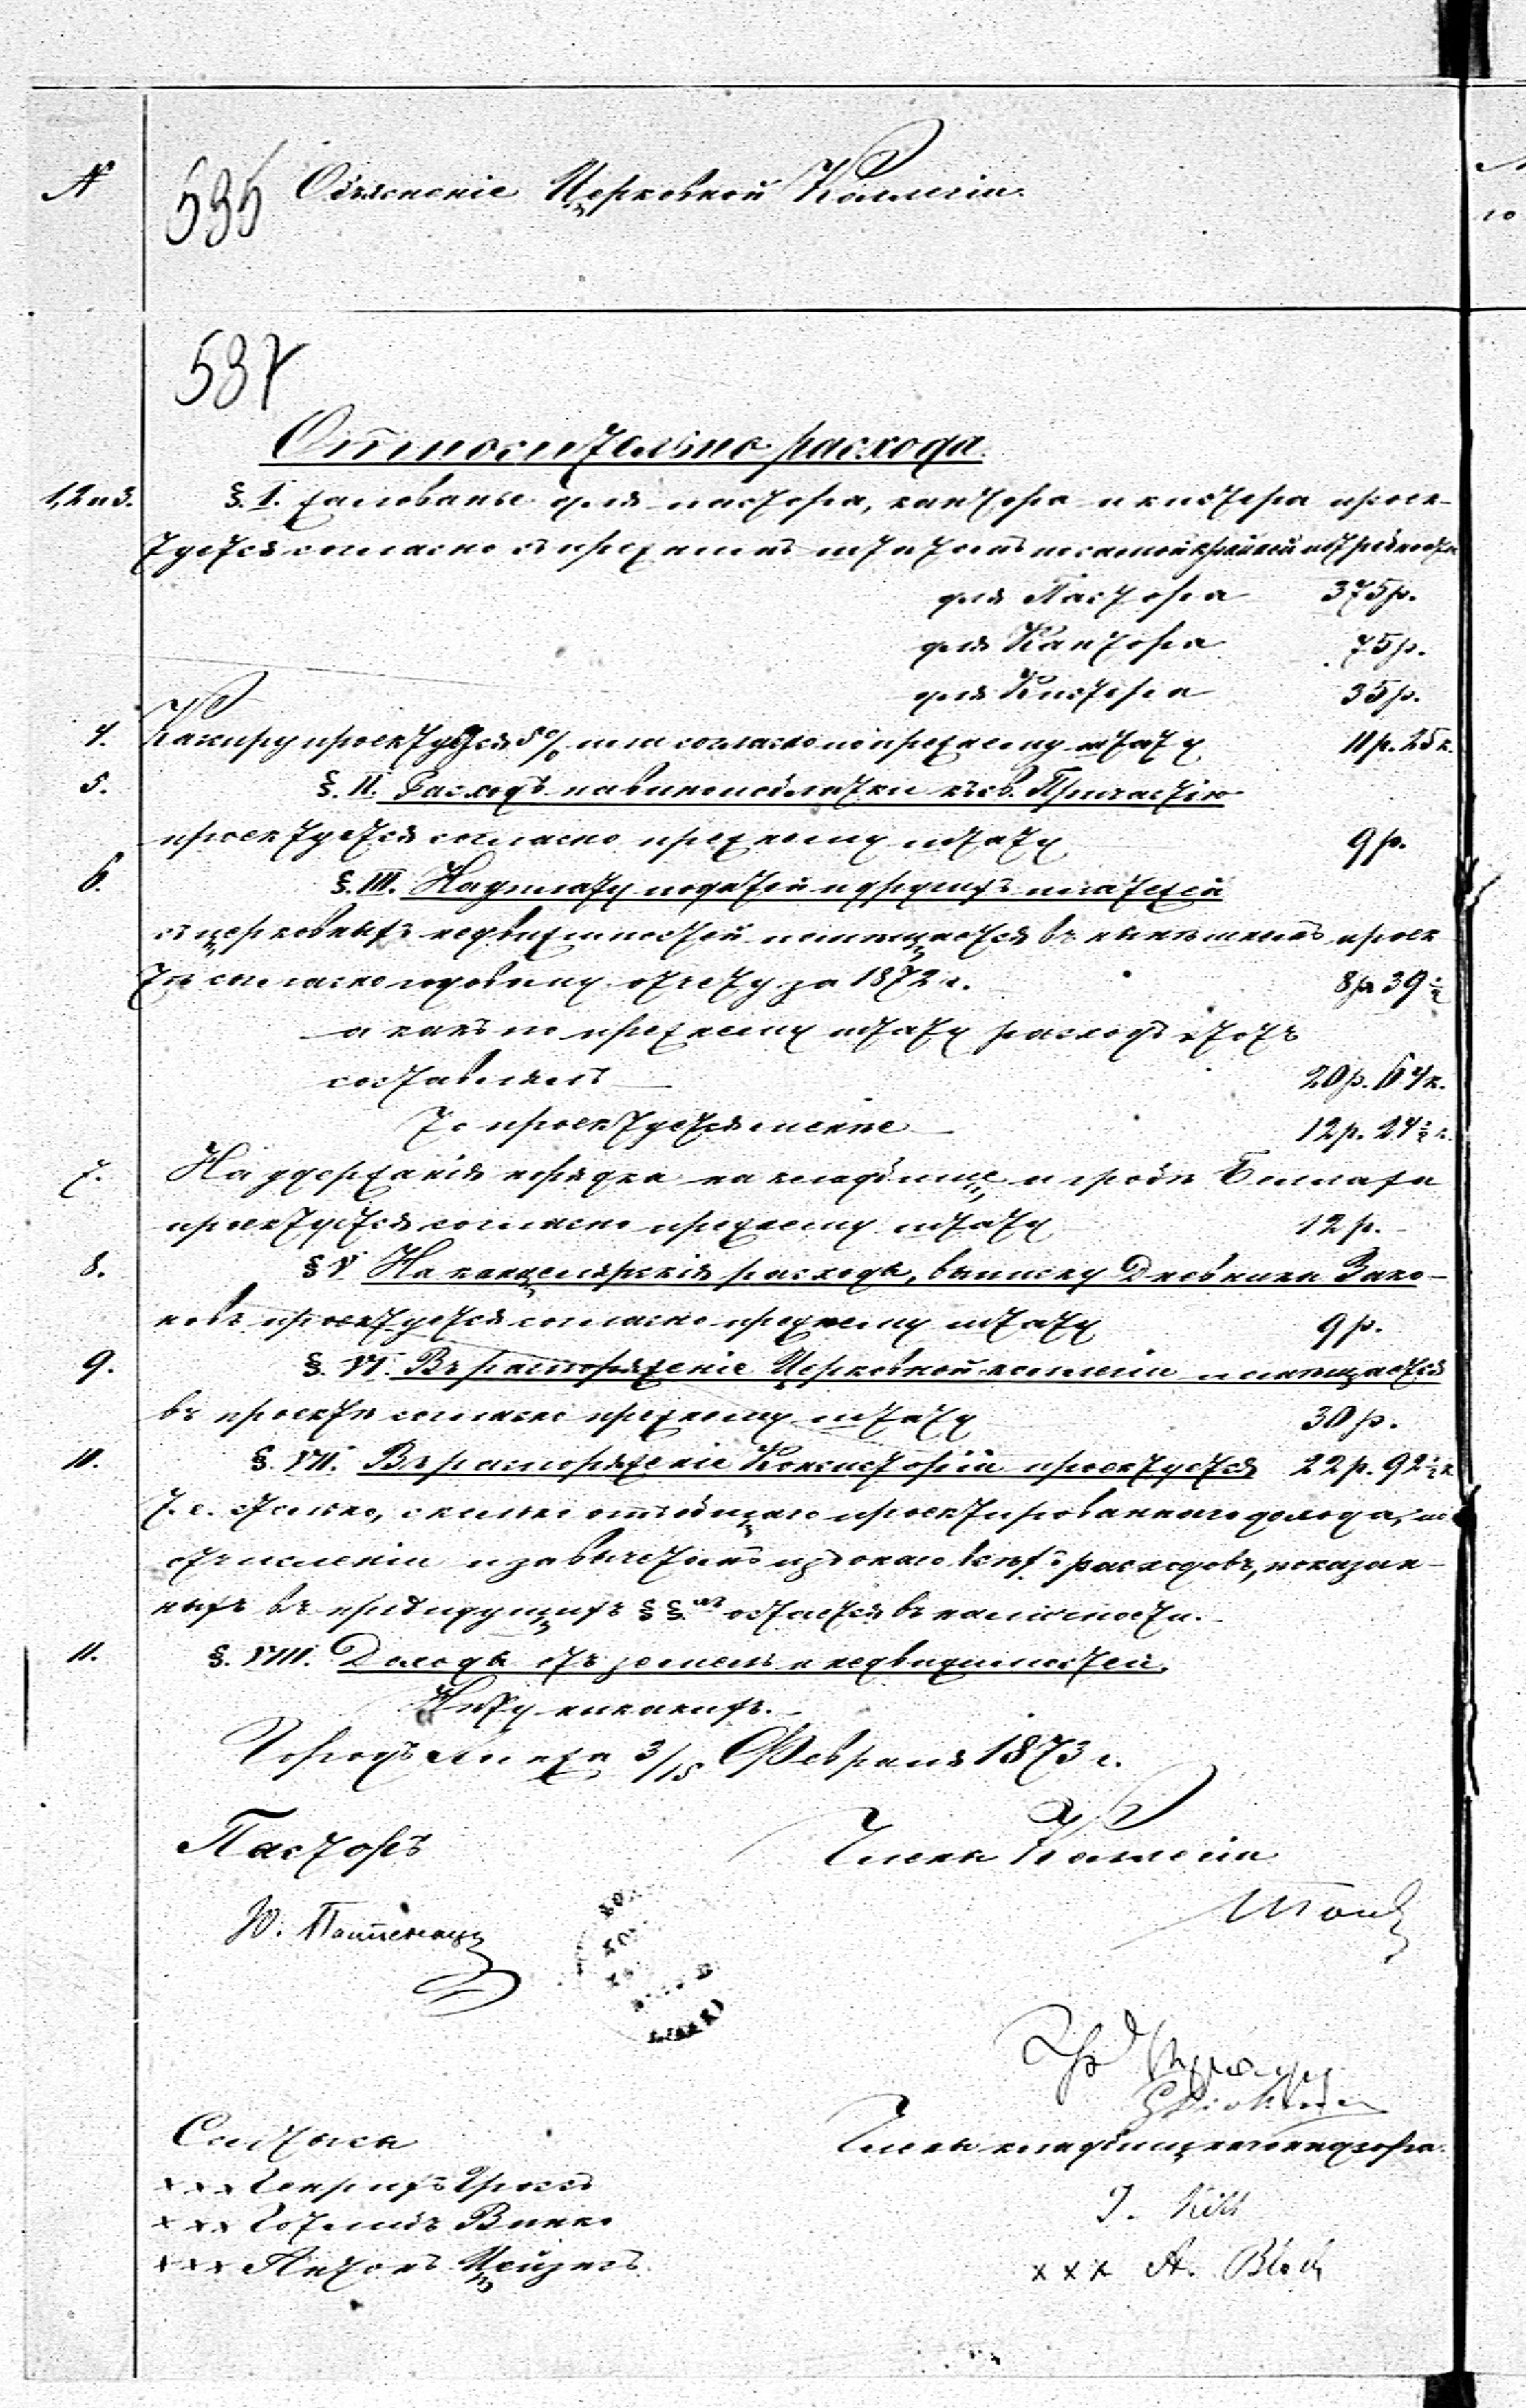 N
535 Объясненіе Церковной Коллегіи.
537
Относительно расхода.
1, 2 и 3. §. I. Жалованье для пастора, кантора и кистера проек-
туется согласно съ прежнимъ штатомъ по самой крайней потребности
для Пастора 375 р.
для Кантора 75 р.
для Кистера 35 р.
4. Касиру проектуется 5% согласно по прежнему штату 11 р. 25 к.
5. §. II. Расходъ на вино и облатки къ св. Причастію
проектуется согласно прежнему штату 9 р.
6. §. III. На уплату податей и другихъ платежей
съ церковныхъ недвижимостей помѣщается въ нынѣшнемъ проек
тѣ согласно годовому отчету за 1872 г. 8 р 39 ½
а какъ по прежнему штату расходъ этотъ
составлялъ 20 р. 64 к.
то проектуется менѣе 12 р. 24 ½ к.
7. На удержанія порядка на кладбище и гробъ
проектуется согласно прежнему штату 12 р.
8. § V На канцелярскія расходы, выписку Дневника Зако-
новъ проектуется согласно прежнему штату 9 р.
9. §. VI. Въ распоряженіе Церковной коллегіи помѣщается
въ проектѣ согласно прежнему штату 30 р.
10. §. VII. Въ распоряженіе Консисторіи проектуется 22 р. 92 ½ к
т. е. столько, сколько отъ общаго проектированнаго дохода, по
отчисленіи и за вычетомъ изъ онаго всѣхъ расходовъ, показан-
ныхъ въ предидущихъ §§.ахъ остается въ наличности.
11. §. VIII. Доходы отъ земель и недвижимостей.
Нѣту никакихъ.
Городъ 3/15 Февраля 1873 г.
Пасторъ Члены Коллегіи
Ю.
Солтысы Члены кладбищенскаго надзора.
xxx Генрихъ
xxx Готлибъ J.
xxx xxx A. Bloch